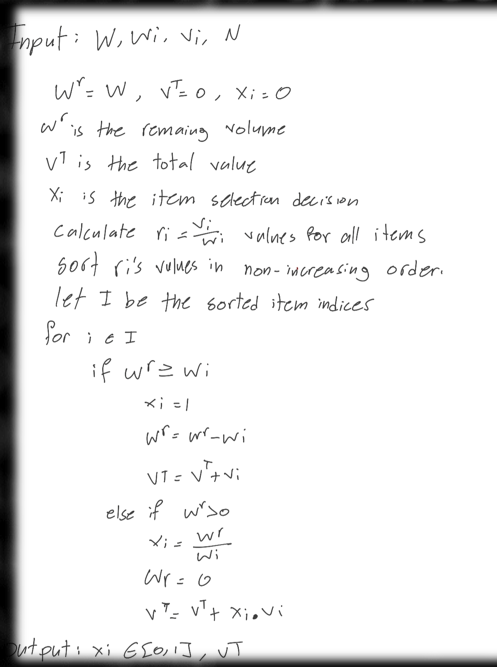 Input: W, Wi, Vi, N
W^r = W, V^T = 0, Xi = 0
W^r is the remaing volume
V^T is the total value
Xi is the item selection decision
Calculate ri = Vi/Wi values for all items
Sort ri's values in non-increasing order.
let I be the sorted item indices
for i ∈ I
if W^r ≥ Wi
Xi = 1
W^r = W^r - Wi
V^T = V^T + Vi
else if W^r > 0
Xi = W^r/Wi
W^r = 0
V^T = V^T + Xi . Vi
Output: Xi ∈ [0,1], V^T